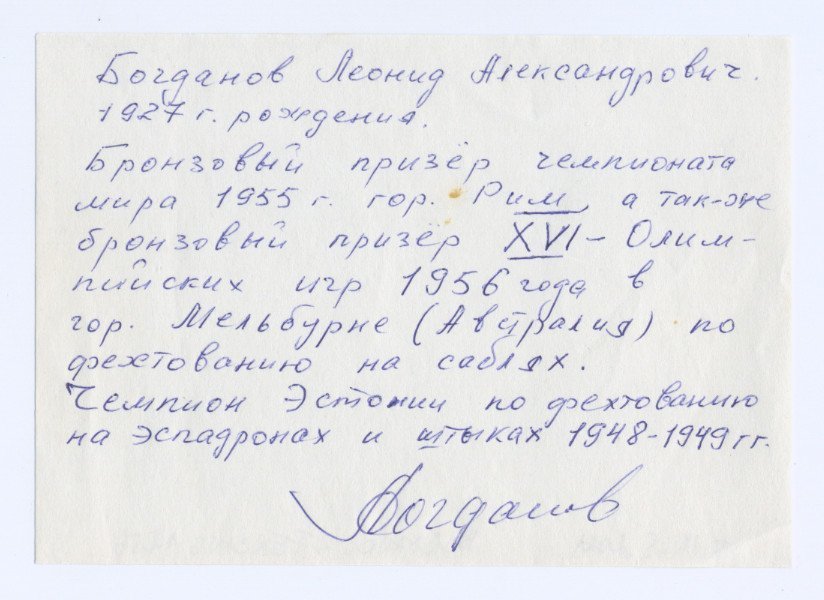 Богданов Леонид Александрович.
1927 г. рождения.
Бронзовый призёр чемпионата
мира 1955 г. гор. Рим, а так-же
бронзовый призёр XVI – Олим-
пийских игр 1956 года в
гор. Мельбурне (Австралия) по
фехтованию на саблях.
Чемпион Эстонии по фехтованию
на эспадронах и штыках 1948-1949 гг.
Богданов